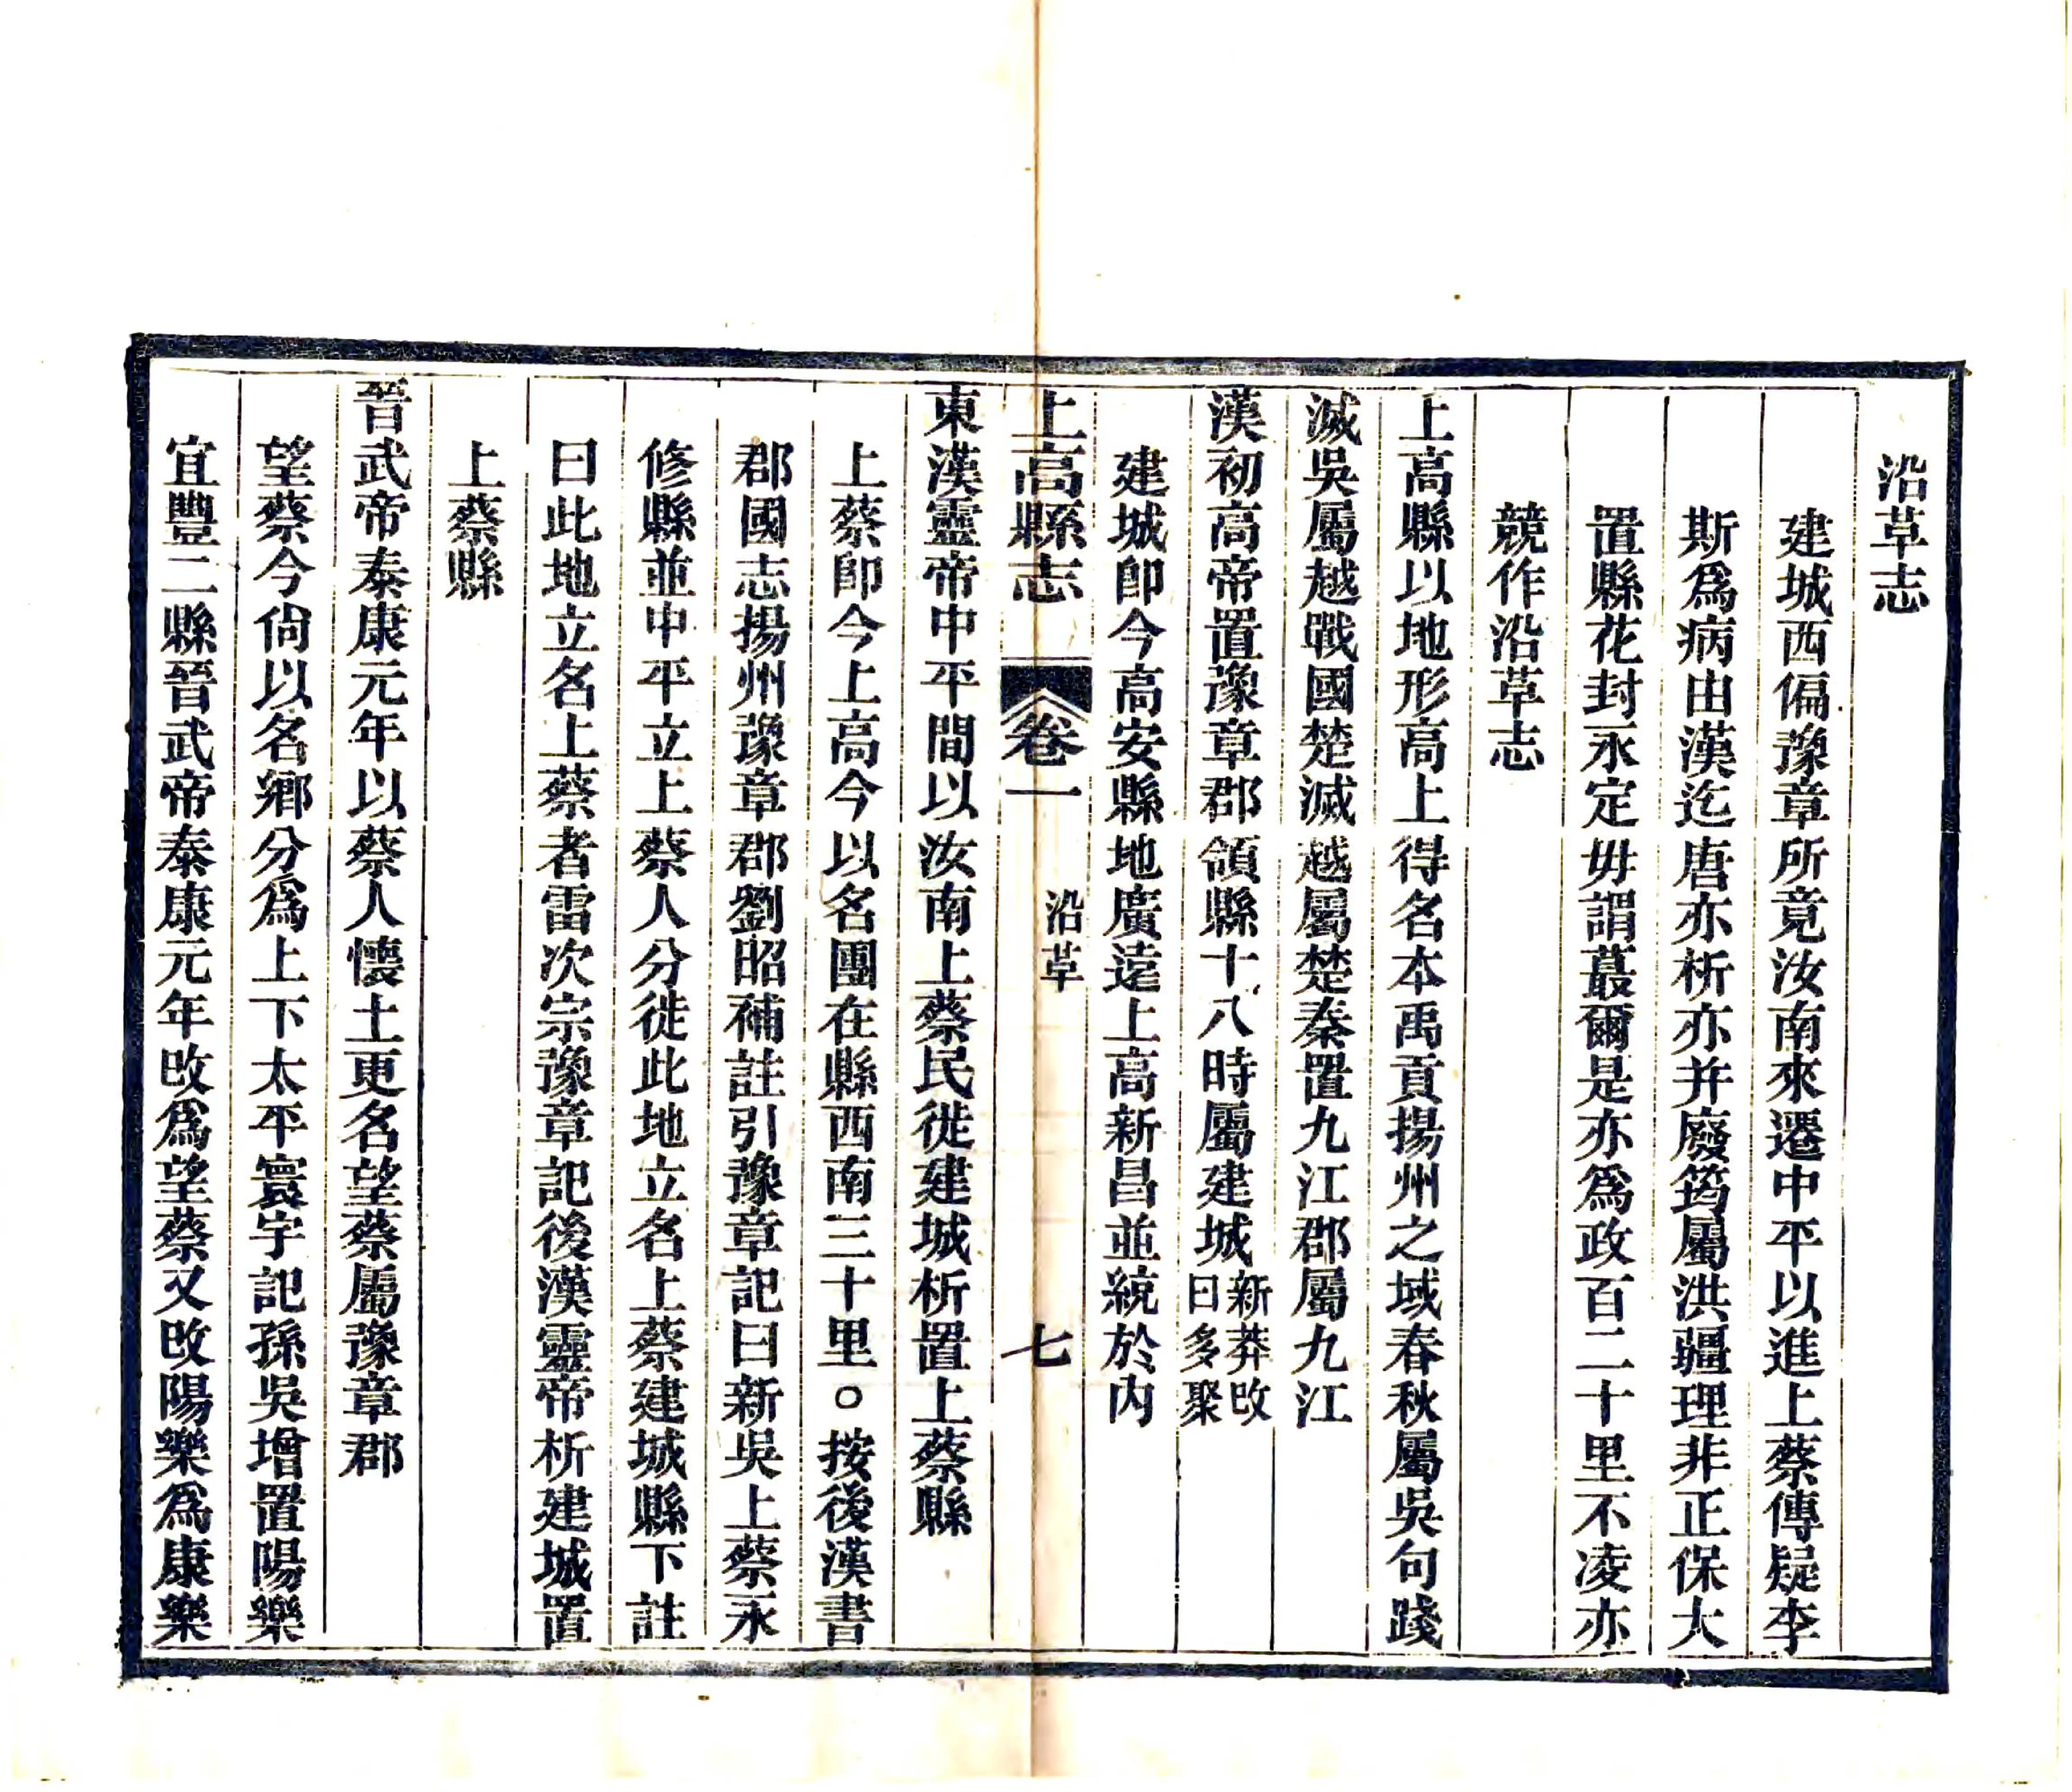 沿革志
建城西偏豫章所竟汝南來遷中平以進上蔡傳疑李
斯爲病由漢迄唐亦析亦并廢筠屬洪疆理非正保大
置縣花封永定毋謂蕞爾是亦爲政百二十里不凌亦
競作沿革志
上高縣以地形高上得名本禹貢揚州之域春秋屬吳句踐
滅吳屬越戰國楚滅越屬楚秦置九江郡屬九江
漢初高帝置豫章郡領縣十八時屬建城新莽改曰多聚
建城卽今高安縣地廣遠上高新昌並統於内
上高縣志 卷一 沿革 七
東漢靈帝中平間以汝南上蔡民徙建城析置上蔡縣
上蔡卽今上高今以名團在縣西南三十里○按後漢書
郡國志揚州豫章郡劉昭補註引豫章記曰新吳上蔡永
修縣並中平立上蔡人分徙此地立名上蔡建城縣下註
曰此地立名上蔡者雷次宗豫章記後漢靈帝析建城置
上蔡縣
晉武帝泰康元年以蔡人懷土更名望蔡屬豫章郡
望蔡今尙以名鄉分爲上下太平寰宇記孫吳增置陽樂
宜豐二縣晉武帝泰康元年改爲望蔡又改陽樂爲康樂